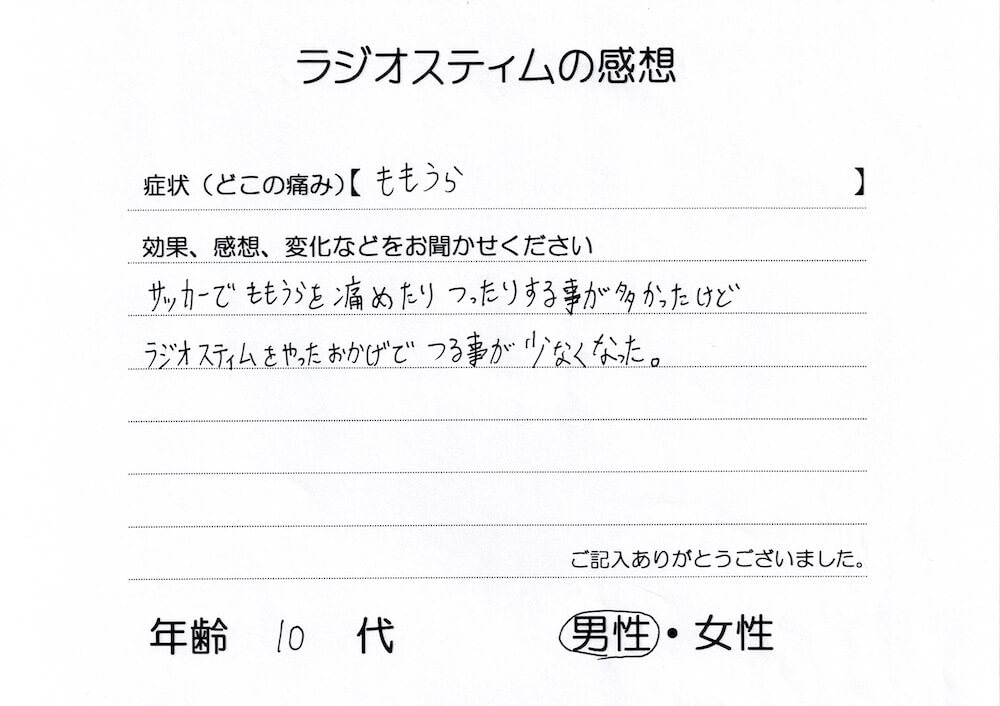 ラジオスティムの感想
症状（どこの痛み）【 ももうら 】
効果、感想、変化などをお聞かせください
サッカーでももうらを痛めたりつったりする事が多かったけど
ラジオスティムをやったおかげでつる事が少なくなった。
ご記入ありがとうございました。
年齢 10 代 男性・女性